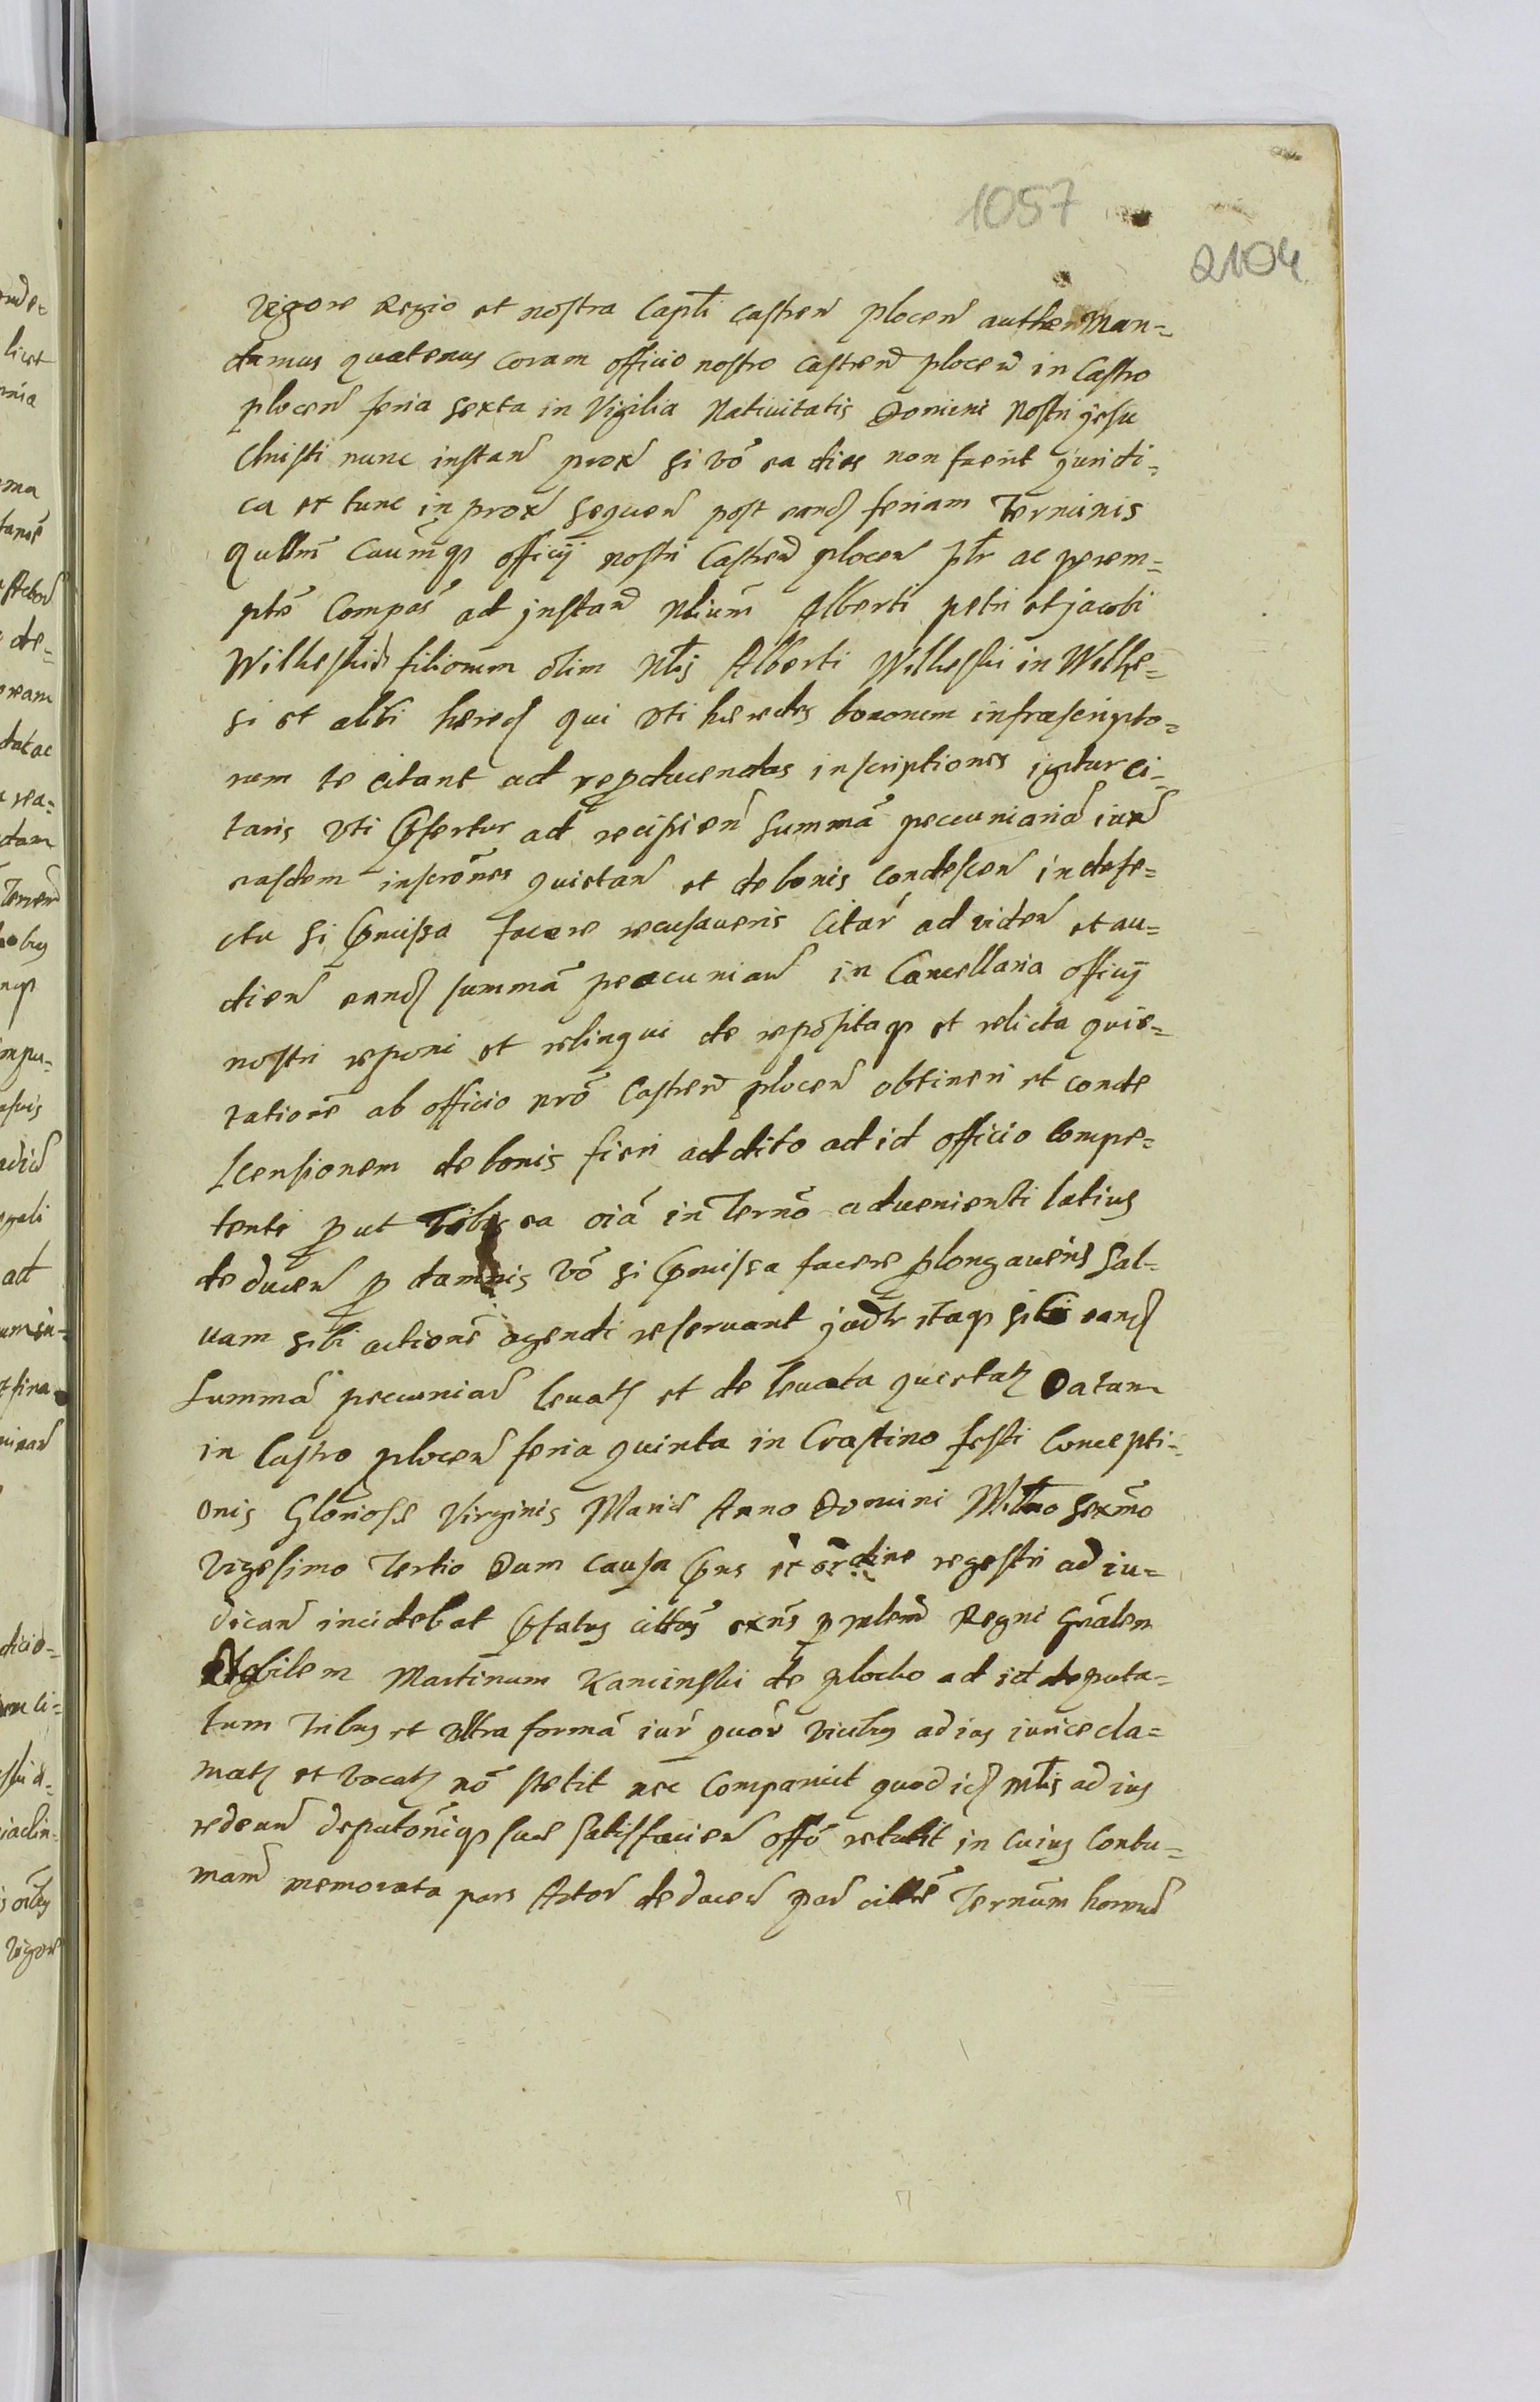 1057
2104
Vigore Regio et nostra Capitli Castren plocen authe Man=
damus quatenus coram officio nostro Castren plocen in Castro
plocen feria sexta in Vigilia Nativitatis Domini Nostri Jesu
Christi nunc instan prox si vō ea dies non fuerit juridi=
ca et tunc in prox sequen post eand feriam Terminis
Qullm Caumq officij nostri Castren plocen ptr ac perem=
ptē Compās ad jnstan Nlium Alberti petri et jacobi
Wilkeskich filiorum olim Nlis Alberti Wilkeski in Wilke=
si et alibi hered qui vti hæredes bonorum infrascripto=
rum te citant ad reproducendas inscriptiones igitur ci=
taris vti præfertur ad recipien summā peccuniariā iux
easdem inscrōnes quietan et de bonis condescen in defe=
ctu si præmissa facere recusaveris Citar ad viden et au=
dien eand summā peccuniar in Cancellaria officij
nostri reponi et relinqui de repositaq et relicta quie=
tationē ab officio nrō Castren plocen obtineri et conde
scensionem de bonis fieri addito ad id officio Compe=
tenti prout Tibi ea oīa in Termō advenienti latius
deducen pro damnis vō si præmissa facere prolongaveris Sal=
vam sibi actionē agendi reservant itaq sibi eand
Summā pecuniar levat et de levata quietat Datum
in Castro plocen feria quinta in Crastino festi Concepti=
onis Gloriosæ Virginis Mariæ Anno Domini Millmo Sexmo
Vigesimo Tertio Dum Causa præns ex ordine regestri ad iu=
dican incidebat præfatus citatus exns per mlem Regni Gnālem
Nobilem Martinum Kaminski de plocko ad id deputa=
tum Tribus et vltra formā iur quor vicibus ad ius iurice cla=
mat et vocat nō stetit nec Comparuit quod id mlis ad ius
redeun deputōniq suæ satisfacien offō retulit in cuius Contu=
mam memorata pars Actor deducen par citatē Ternum